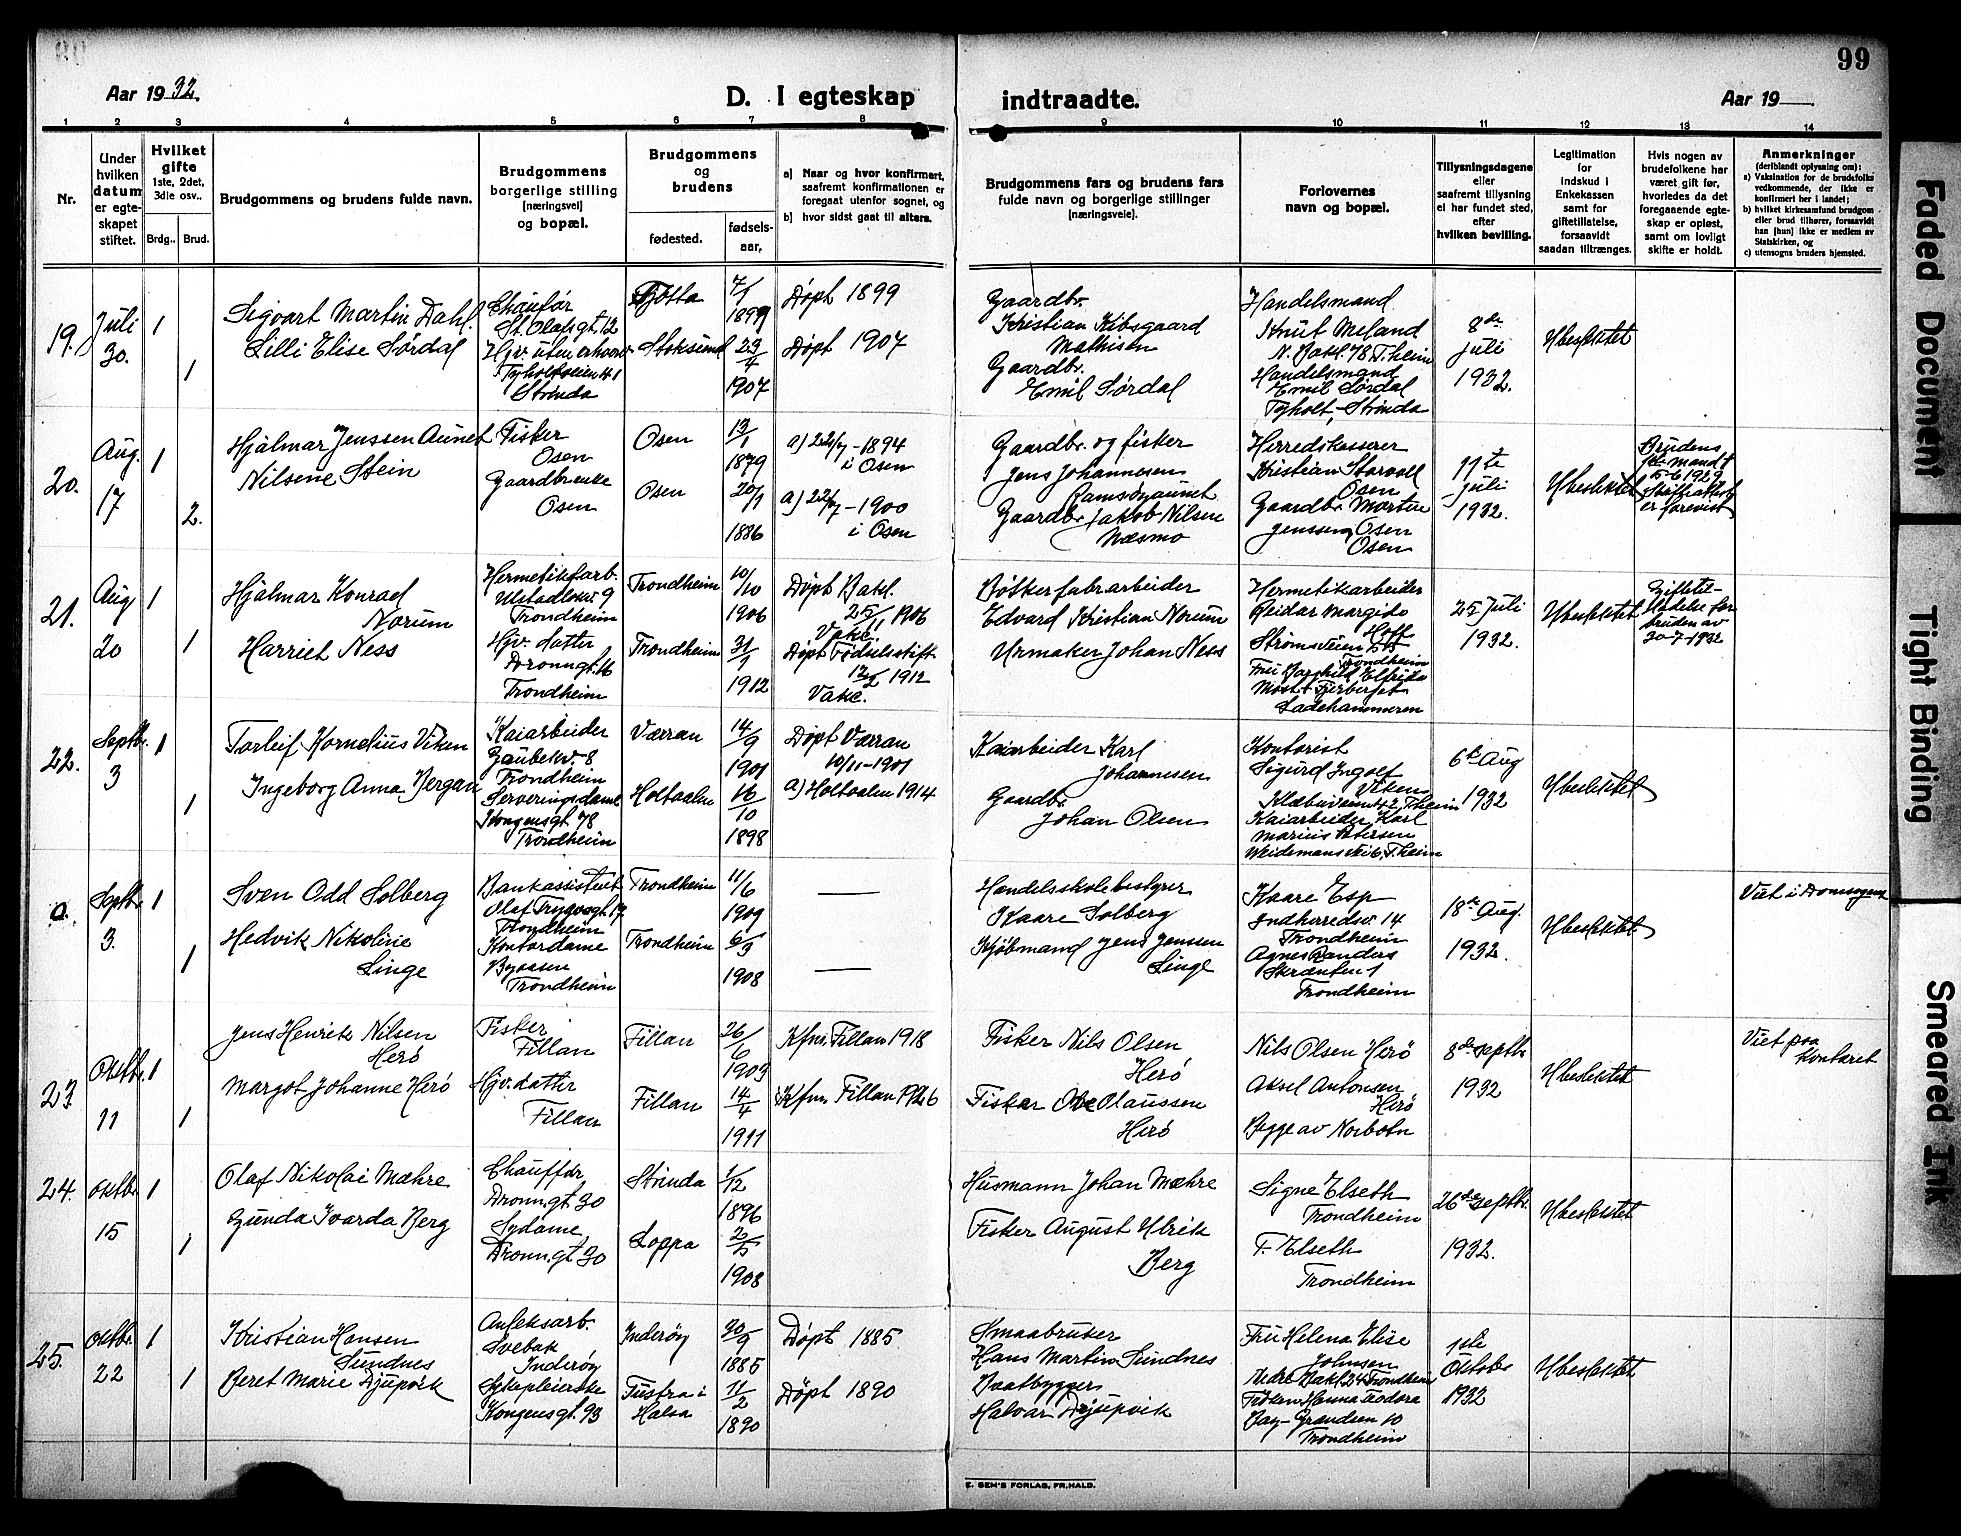 99
Aar 1932.
D. I egteskap
indtraadte.
Aar 19
1 2 3 4 5 6 7 8 9 10 11 12 13 14
Nr.
Under hvilken datum er egteskapet stiftet.
Hvilket gifte 1ste, 2det, 3die osv..
Brdg.. Brud.
Brudgommens og brudens fulde navn.
Brudgommens borgerlige stilling [næringsvei] og bopæl.
Brudgommens og brudens
fødested.
fødselsaar,
a) Naar og hvor konfirmert, saafremt konfirmationen er foregaat utenfor sognet, og
b) hvor sidst gaat til alters.
Brudgommens fars og brudens fars fulde navn og borgerlige stillinger [næringsveie].
Forlovernes navn og bopæl.
Tillysningsdagene eller saafremt tillysning ei har fundet sted, efter hvilken bevilling.
Legitimation for indskud i Enkekassen samt for giftetillatelse, forsaavidt saadan tiltrænges.
Hvis nogen av brudefolkene har været gift før, hvorledes da det foregaaende egteskap er opløst, samt om lovligt skifte er holdt.
Anmerkninger
(deriblandt oplysning om):
a) Vaksination for de brudefolks vedkommende, der ikke er konfirmert her i landet;
b) hvilket kirkesamfund brudgom eller brud tilhører, forsaavidt han [hun] ikke er medlem av Statskirken, og
c) utensogns bruders hjemsted.
19.
Juli
30.
1
1
Sigvart Martin Dahl.
Lilli Elise Sørdal
Chauffør
St. Olafsgt. 12
Hjv. uten erhverv
Tyholtveien 41
Strinda
Tjøtta
Stoksund
7/1
1899
23/4
1907
Døpt 1899
Døpt 1907
Gaardbr.
Kristian Kibsgaard
Mathisen
Gaardbr.
Emil Sørdal
Handelsmand
Knut Meland
N. Bakl. 78 T.heim
Handelsmand
Emil Sørdal
Tyholt, Strinda
8de
juli
1932.
Ubeslektet
20.
Aug.
17
1
2.
Hjalmar Jenssen Aunet
Nilsene Stein
Fisker
Osen
Gaardbr.enke
Osen
Osen
Osen
13/1
1879
20/1
1886
a) 22/7-1894
i Osen
a) 22/7-1900
i Osen
Gaardbr. og fisker
Jens Johannesen
Ramsøyaunet
Gaardbr. Jakob Nilsen
Næsmo
Herredskasserer
Kristian Storvoll
Osen
Gaardbr. Martin
Jenssen, Osen
Osen
11te
juli
1932.
Ubeslektet
Brudens
1ste mand †
5-6 1929
Skifteattest
er forevist
21.
Aug
20
1
1
Hjalmar Konrad
Norum
Harriet Ness
Hermetikfarb.
Ulstadløkv. 9
Trondheim
Hjv. datter
Dronn.gt. 16
Trondheim
Trondheim
Trondheim
10/10
1906
31/1
1912
Døpt Bakl.
25/11 1906
Vakc.
Døpt Fødselsstift.
12/2 1912
Vakc.
Bøtkerfabrarbeider
Edvard Kristian Norum
Urmaker Johan Ness
Hermetikarbeider
Reidar Margido
Hoff
Strømsveien 5 B
Trondheim
Fru Borghild Elfrida
Most Fjerberget
Ladehammeren
25 Juli
1932.
Ubeslektet
Giftetilladelse for
bruden av
30-7-1932
22.
Septbr.
3
1
1
Torleif Kornelius Viken
Ingeborg Anna Bergan
Kaiarbeider
Gaubekv. 8
Trondheim
Serveringsdame
Kongensgt. 78
Trondheim
Værran
Holtaalen
14/9
1901
16/10
1898
Døpt Værran
10/11-1901
a) Holtaalen 1914
Kaiarbeider Karl
Johannesen
Gaardbr.
Johan Olsen
Kontorist
Sigurd Ingolf
Viken
Klæbuveien 42, T.heim
Kaiarbeider Karl
Marius Petersen
Weidemansvei 6, T.heim
6te Aug
1932
Ubeslektet
0.
Septbr.
3.
1
1
Sven Odd Solberg
Hedvik Nikoline
Linge
Bankassistent
Olaf Trygvasgt. 17
Trondheim
Kontordame
Byaasen
Trondheim
Trondheim
Trondheim
11/6
1909
6/3
1908
Handelsskolebestyrer
Kaare Solberg
Kjøbmand Jens Jenssen
Linge
Kaare Esp
Indherredsv 14
Trondheim
Agnes Randers
Skrænten 1
Trondheim
18de Aug.
1932.
Ubeslektet
Viet i Domsognet
23.
Oktbr.
11
1
1
Jens Henrik Nilsen
Herø
Margot Johanne Herø
Fisker
Fillan
Hjv. datter
Fillan
Fillan
Fillan
26/6
1903
14/4
1911
Kfm. Fillan 1918
Kfm. Fillan 1926
Fisker Nils Olsen
Herø
Fisker Ole Olaussen
Herø
Nils Olsen Herø
Aksel Antonsen
Herø
Begge av Norbotn
8de septbr
1932
Ubeslektet
Viet paa
kontoret
24.
oktbr.
15
1
1
Olaf Nikolai Mæhre
Gunda Ivarda Berg
Chauffør
Dronn.gt. 30
Sydame
Dronn.gt. 30
Strinda
Loppa
1/12
1896
2/5
1908
Husmann Johan Mæhre
Fisker August Ulrik
Berg
Signe Elseth
Trondheim
F. Elseth
Trondheim
26de septbr.
1932.
Ubeslektet
25.
Oktbr.
22
1
1
Kristian Hansen
Sundnes
Beret Marie Djupvik
Anleksarb.
Svebak
Inderøy
Sykepleierske
Kongensgt. 93
Inderøy
Tustna i
Halsa
30/9
1885
11/2
1890
Døpt 1885
Døpt 1890
Smaabruker
Hans Martin Sundnes
Baatbygger
Halvar Djupvik
Fru Helena Elise
Johnsen
Nedre Bakl. 24 Trondheim
Frøken Hanna Teodora
Bay-Grandsen 10
Trondheim
1ste
Oktober
1932
Ubeslektet
E. SEM'S FORLAG, FR.HALD.
Faded Document
Tight Binding
Smeared Ink